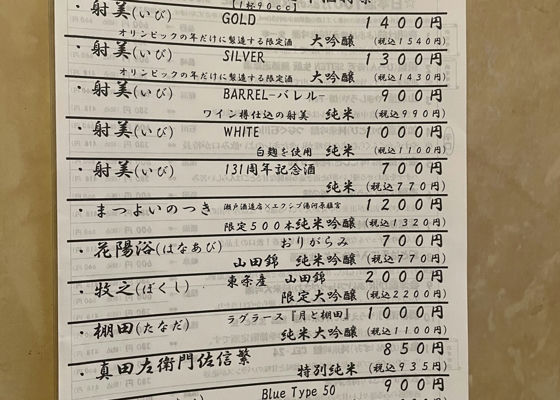 [1杯90cc]
・射美(いび) GOLD 1400円
オリンピックの年だけに製造する限定酒 大吟醸 (税込1540円)
・射美(いび) SILVER 1300円
オリンピックの年だけに製造する限定酒 大吟醸 (税込1430円)
・射美(いび) BARREL-バレル- 900円
ワイン樽仕込の射美 純米 (税込990円)
・射美(いび) WHITE 1000円
白麹を使用 純米 (税込1100円)
・射美(いび) 131周年記念酒 700円
純米 (税込770円)
・まつよいのつき 瀬戸酒造店×エクシブ湯河原離宮 1200円
限定500本 純米吟醸 (税込1320円)
・花陽浴(はなあび) おりがらみ 700円
山田錦 純米吟醸 (税込770円)
・牧之(ぼくし) 東条産 山田錦 2000円
限定大吟醸 (税込2200円)
・棚田(たなだ) ラグラース『月と棚田』 1000円
純米大吟醸 (税込1100円)
・真田左衛門佐信繁 850円
特別純米 (税込935円)
Blue Type 50 900円